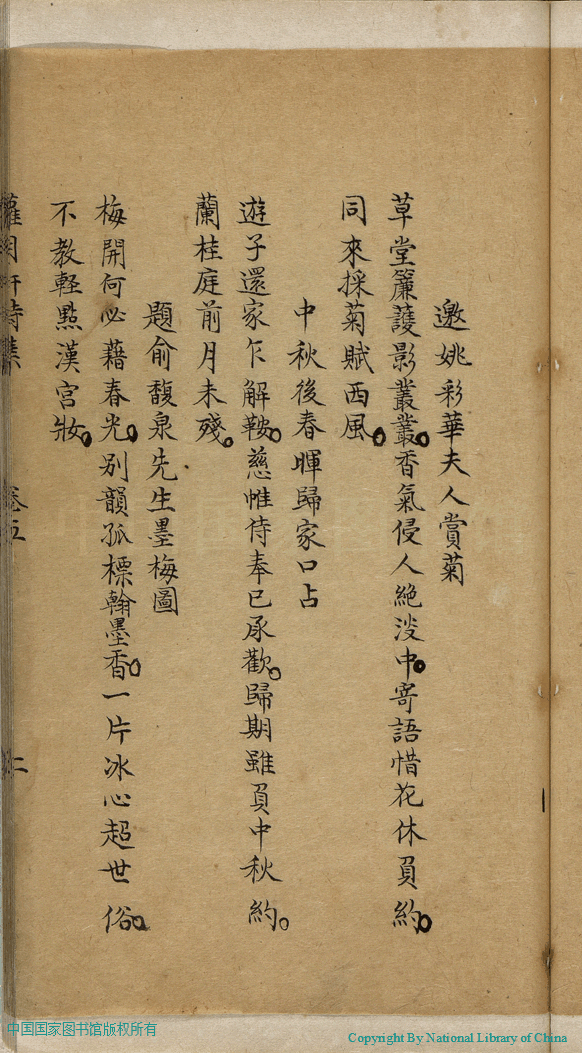 邀姚彩華夫人賞菊
草堂簾護影叢叢。香氣侵人絕淡中。寄語惜花休負約。
同來採菊賦西風。
中秋後春暉歸家口占
遊子還家乍解鞍。慈帷侍奉已承歡。歸期雖負中秋約。
蘭桂庭前月未殘。
題俞馥泉先生墨梅圖
梅開何必藉春光。別韻孤標翰墨香。一片冰心超世俗。
不教輕點漢宮妝。
卷五
二
中国国家图书馆版权所有
Copyright By National Library of China